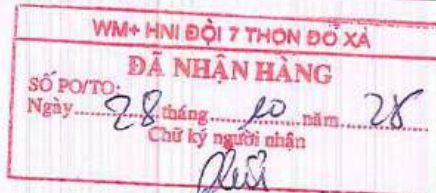 WM+ HNI ĐỘI 7 THÔN ĐỖ XÁ
ĐÃ NHẬN HÀNG
SỐ PO/TO:
Ngày 28 tháng 10 năm 25
Chữ ký người nhận